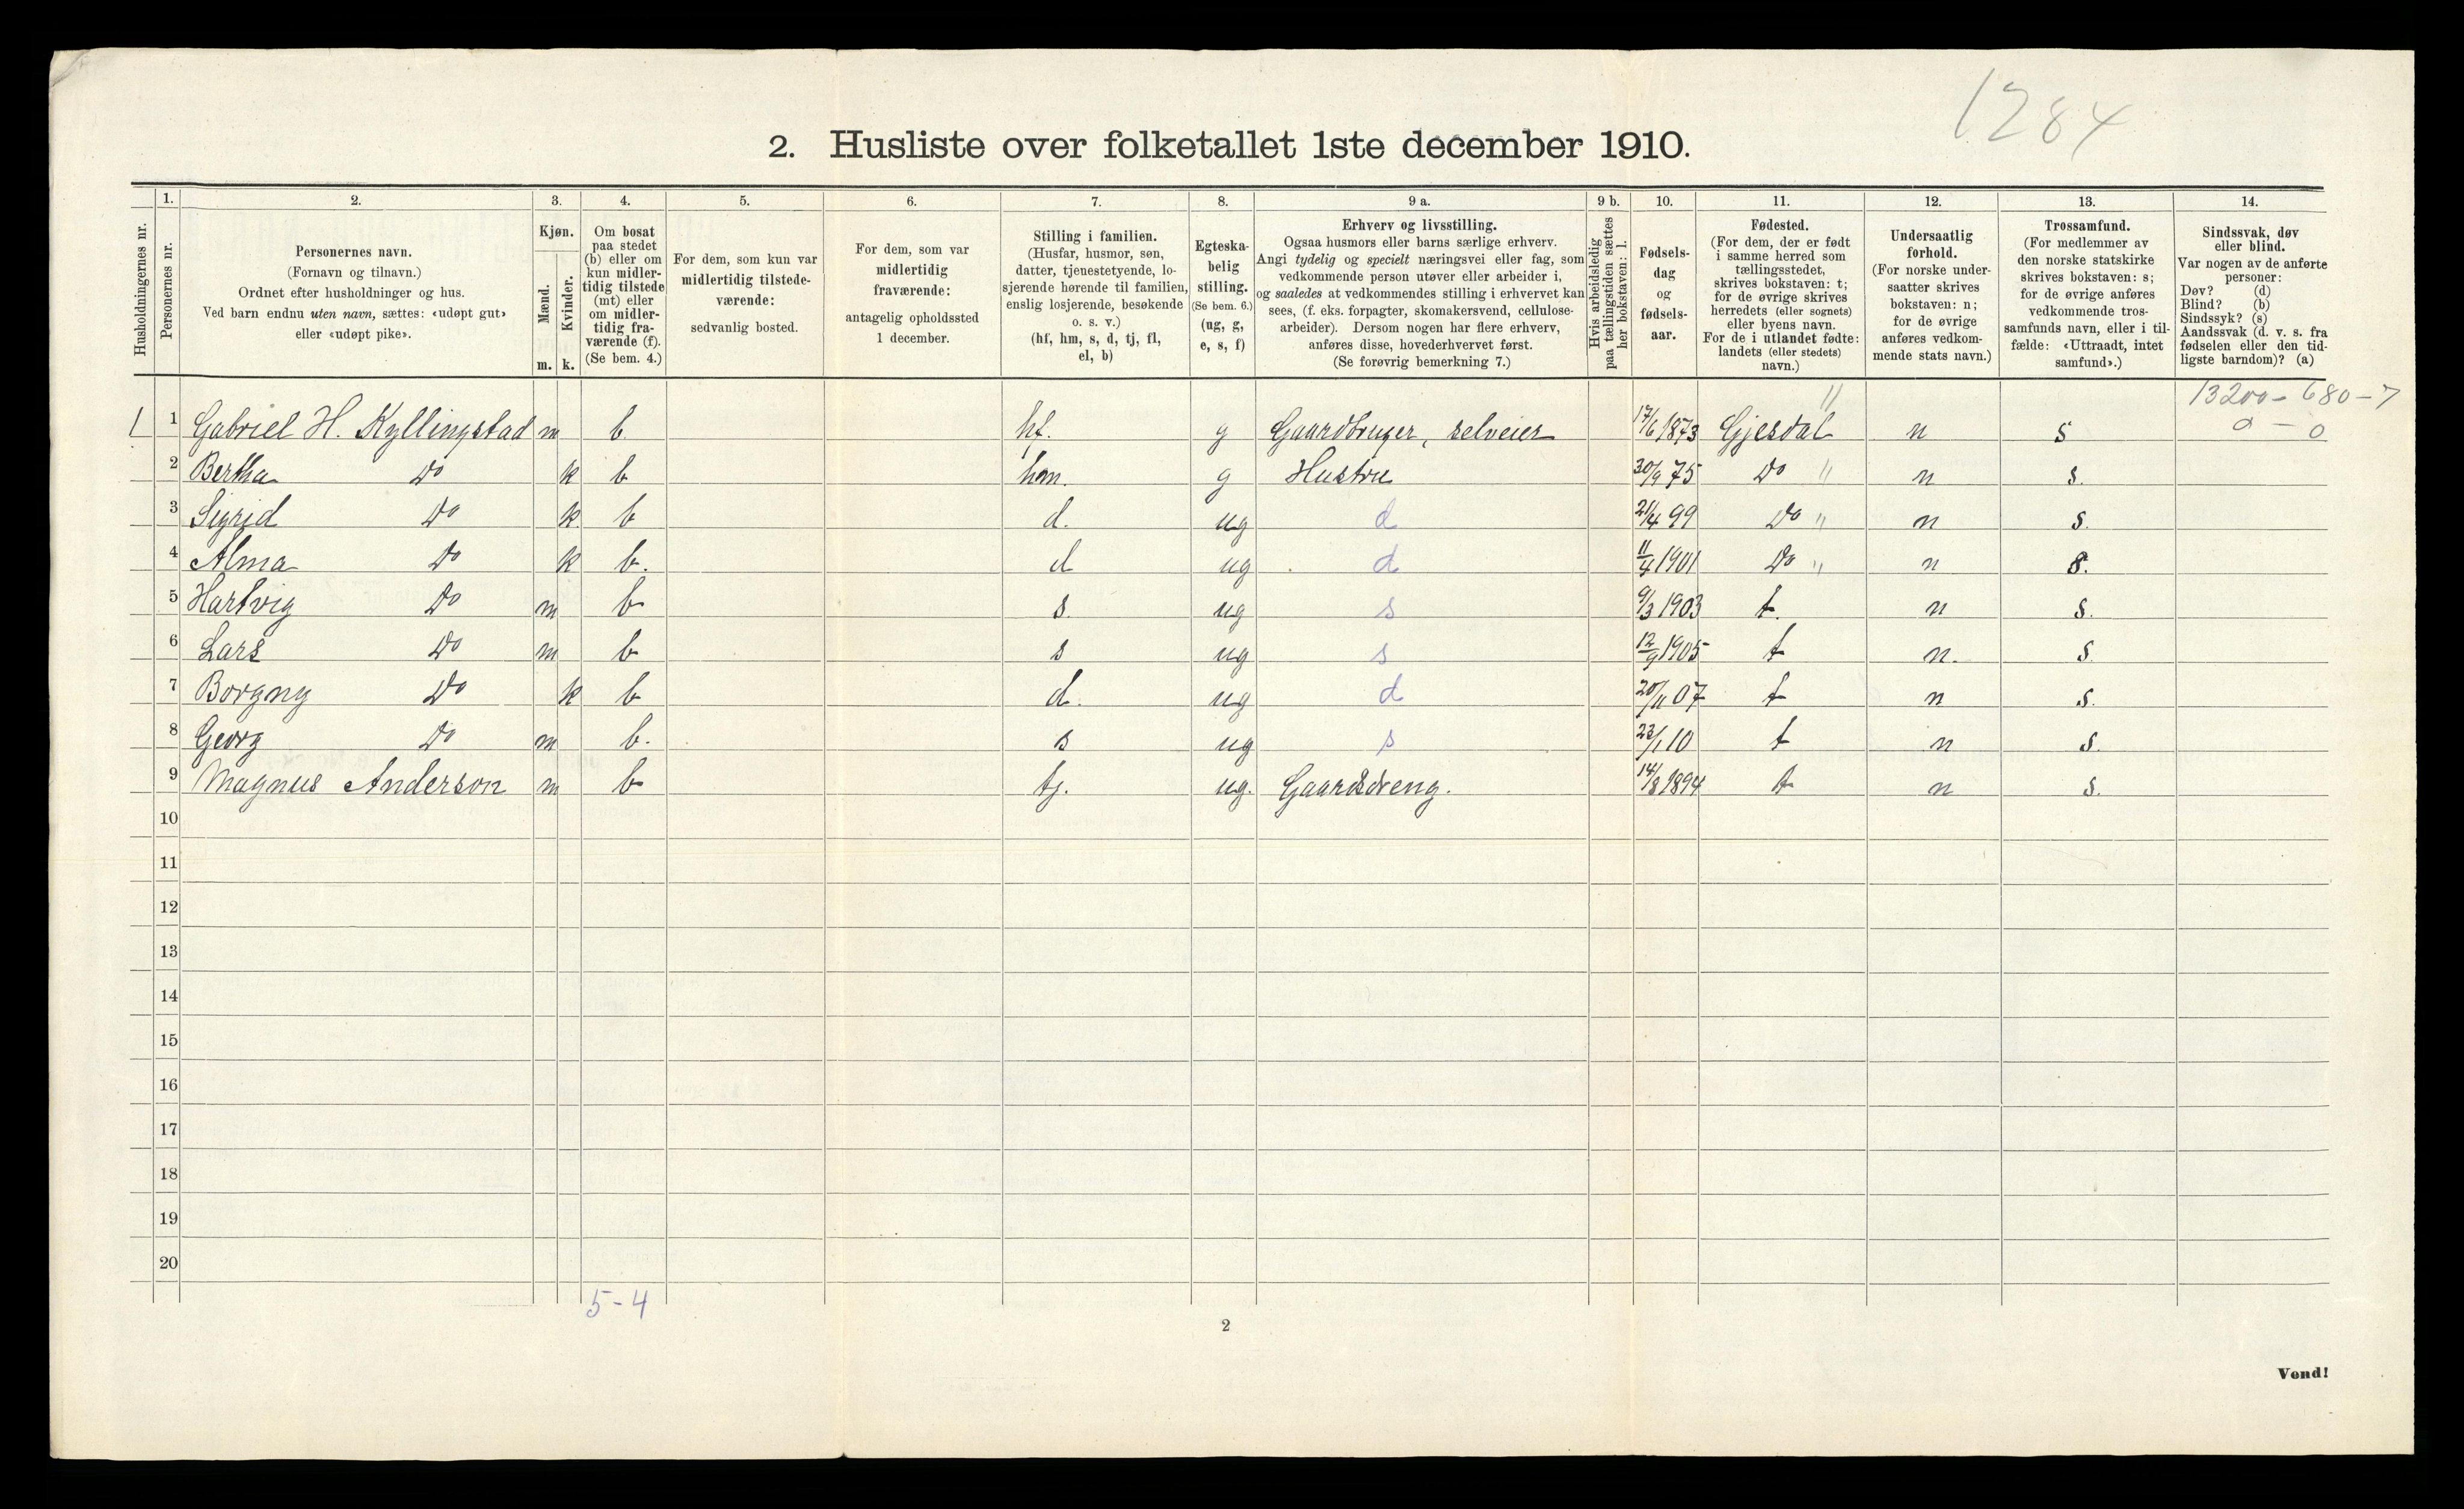 1284
2. Husliste over folketallet 1ste december 1910.
Husholdningernes nr.
1.
Personernes nr.
2.
Personernes navn.
(Fornavn og tilnavn.)
Ordnet efter husholdninger og hus.
Ved barn endnu uten navn, sættes: «udøpt gut»
eller «udøpt pike».
3.
Kjøn.
Mænd.
Kvinder.
m. k.
4.
Om bosat
paa stedet
(b) eller om
kun midler-
tidig tilstede
(mt) eller
om midler-
tidig fra-
værende (f).
(Se bem. 4.)
5.
For dem, som kun var
midlertidig tilstede-
værende:
sedvanlig bosted.
6.
For dem, som var
midlertidig
fraværende:
antagelig opholdssted
1 december.
7.
Stilling i familien.
(Husfar, husmor, søn,
datter, tjenestetyende, lo-
sjerende hørende til familien,
enslig losjerende, besøkende
o. s. v.)
(hf, hm, s, d, tj, fl,
el, b)
8.
Egteska-
belig
stilling.
(Se bem. 6.)
(ug, g,
e, s, f)
9 a.
Erhverv og livsstilling.
Ogsaa husmors eller barns særlige erhverv.
Angi tydelig og specielt næringsvei eller fag, som
vedkommende person utøver eller arbeider i,
og saaledes at vedkommendes stilling i erhvervet kan
sees, (f. eks. forpagter, skomakersvend, cellulose-
arbeider). Dersom nogen har flere erhverv,
anføres disse, hovederhvervet først.
(Se forøvrig bemerkning 7.)
9 b.
Hvis arbeidsledig
paa tællingstiden sættes
her bokstaven: l.
10.
Fødsels-
dag
og
fødsels-
aar.
11.
Fødested.
(For dem, der er født
i samme herred som
tællingsstedet,
skrives bokstaven: t;
for de øvrige skrives
herredets (eller sognets)
eller byens navn.
For de i utlandet fødte:
landets (eller stedets)
navn.)
12.
Undersaatlig
forhold.
(For norske under-
saatter skrives
bokstaven: n;
for de øvrige
anføres vedkom-
mende stats navn.)
13.
Trossamfund.
(For medlemmer av
den norske statskirke
skrives bokstaven: s;
for de øvrige anføres
vedkommende tros-
samfunds navn, eller i til-
fælde: «Uttraadt, intet
samfund».)
14.
Sindssvak, døv
eller blind.
Var nogen av de anførte
personer:
Døv? (d)
Blind? (b)
Sindssyk? (s)
Aandssvak (d. v. s. fra
fødselen eller den tid-
ligste barndom)? (a)
" 13200 - 680 - 7
1 1 Gabriel H. Kyllingstad m b hf. g Gaardbruger, selveier 17/6 1873 Gjesdal n s 0 - 0
2 Bertha Do k b hm. g Hustru 30/9 75 Do " n s.
3 Sigrid Do k b d. ug d 21/4 99 Do " n s.
4 Alma Do k b. d ug d 11/4 1901 Do " n s.
5 Hartvig Do m b s. ug s 9/3 1903 t. n s.
6 Lars Do m b s ug s 12/9 1905 t n. s.
7 Borgny Do k b d. ug d 20/11 07 t n s.
8 Georg Do m b. s ug s 23/1 10 t n s.
9 Magnus Anderson m b tj. ug. Gaardsdreng. 14/8 1894 t n s.
10
11
12
13
14
15
16
17
18
19
20
5-4
2
Vend!